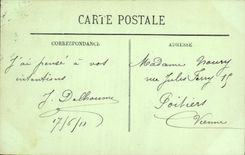 CARTE POSTALE
CORRESPONDANCE
J'ai pensé à vos
intentions
J. Delhoume
17/6/10
ADRESSE
Madame Noury
rue Jules Ferry 15
Poitiers
Vienne